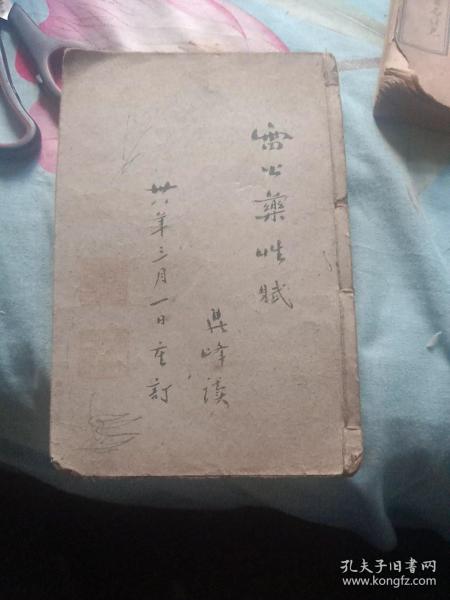 雷公藥性賦
峰讀
卅年三月一日重訂
孔夫子旧书网
www.kongfz.com